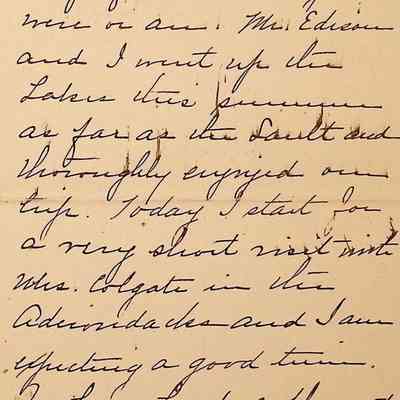 were or are. Mr. Edison
and I went up the
Lakes this summer
as far as the Sault and
thoroughly enjoyed our
trip. Today I start for
a very short visit with
Mrs. Colgate in the
Adirondacks and I am
expecting a good time.